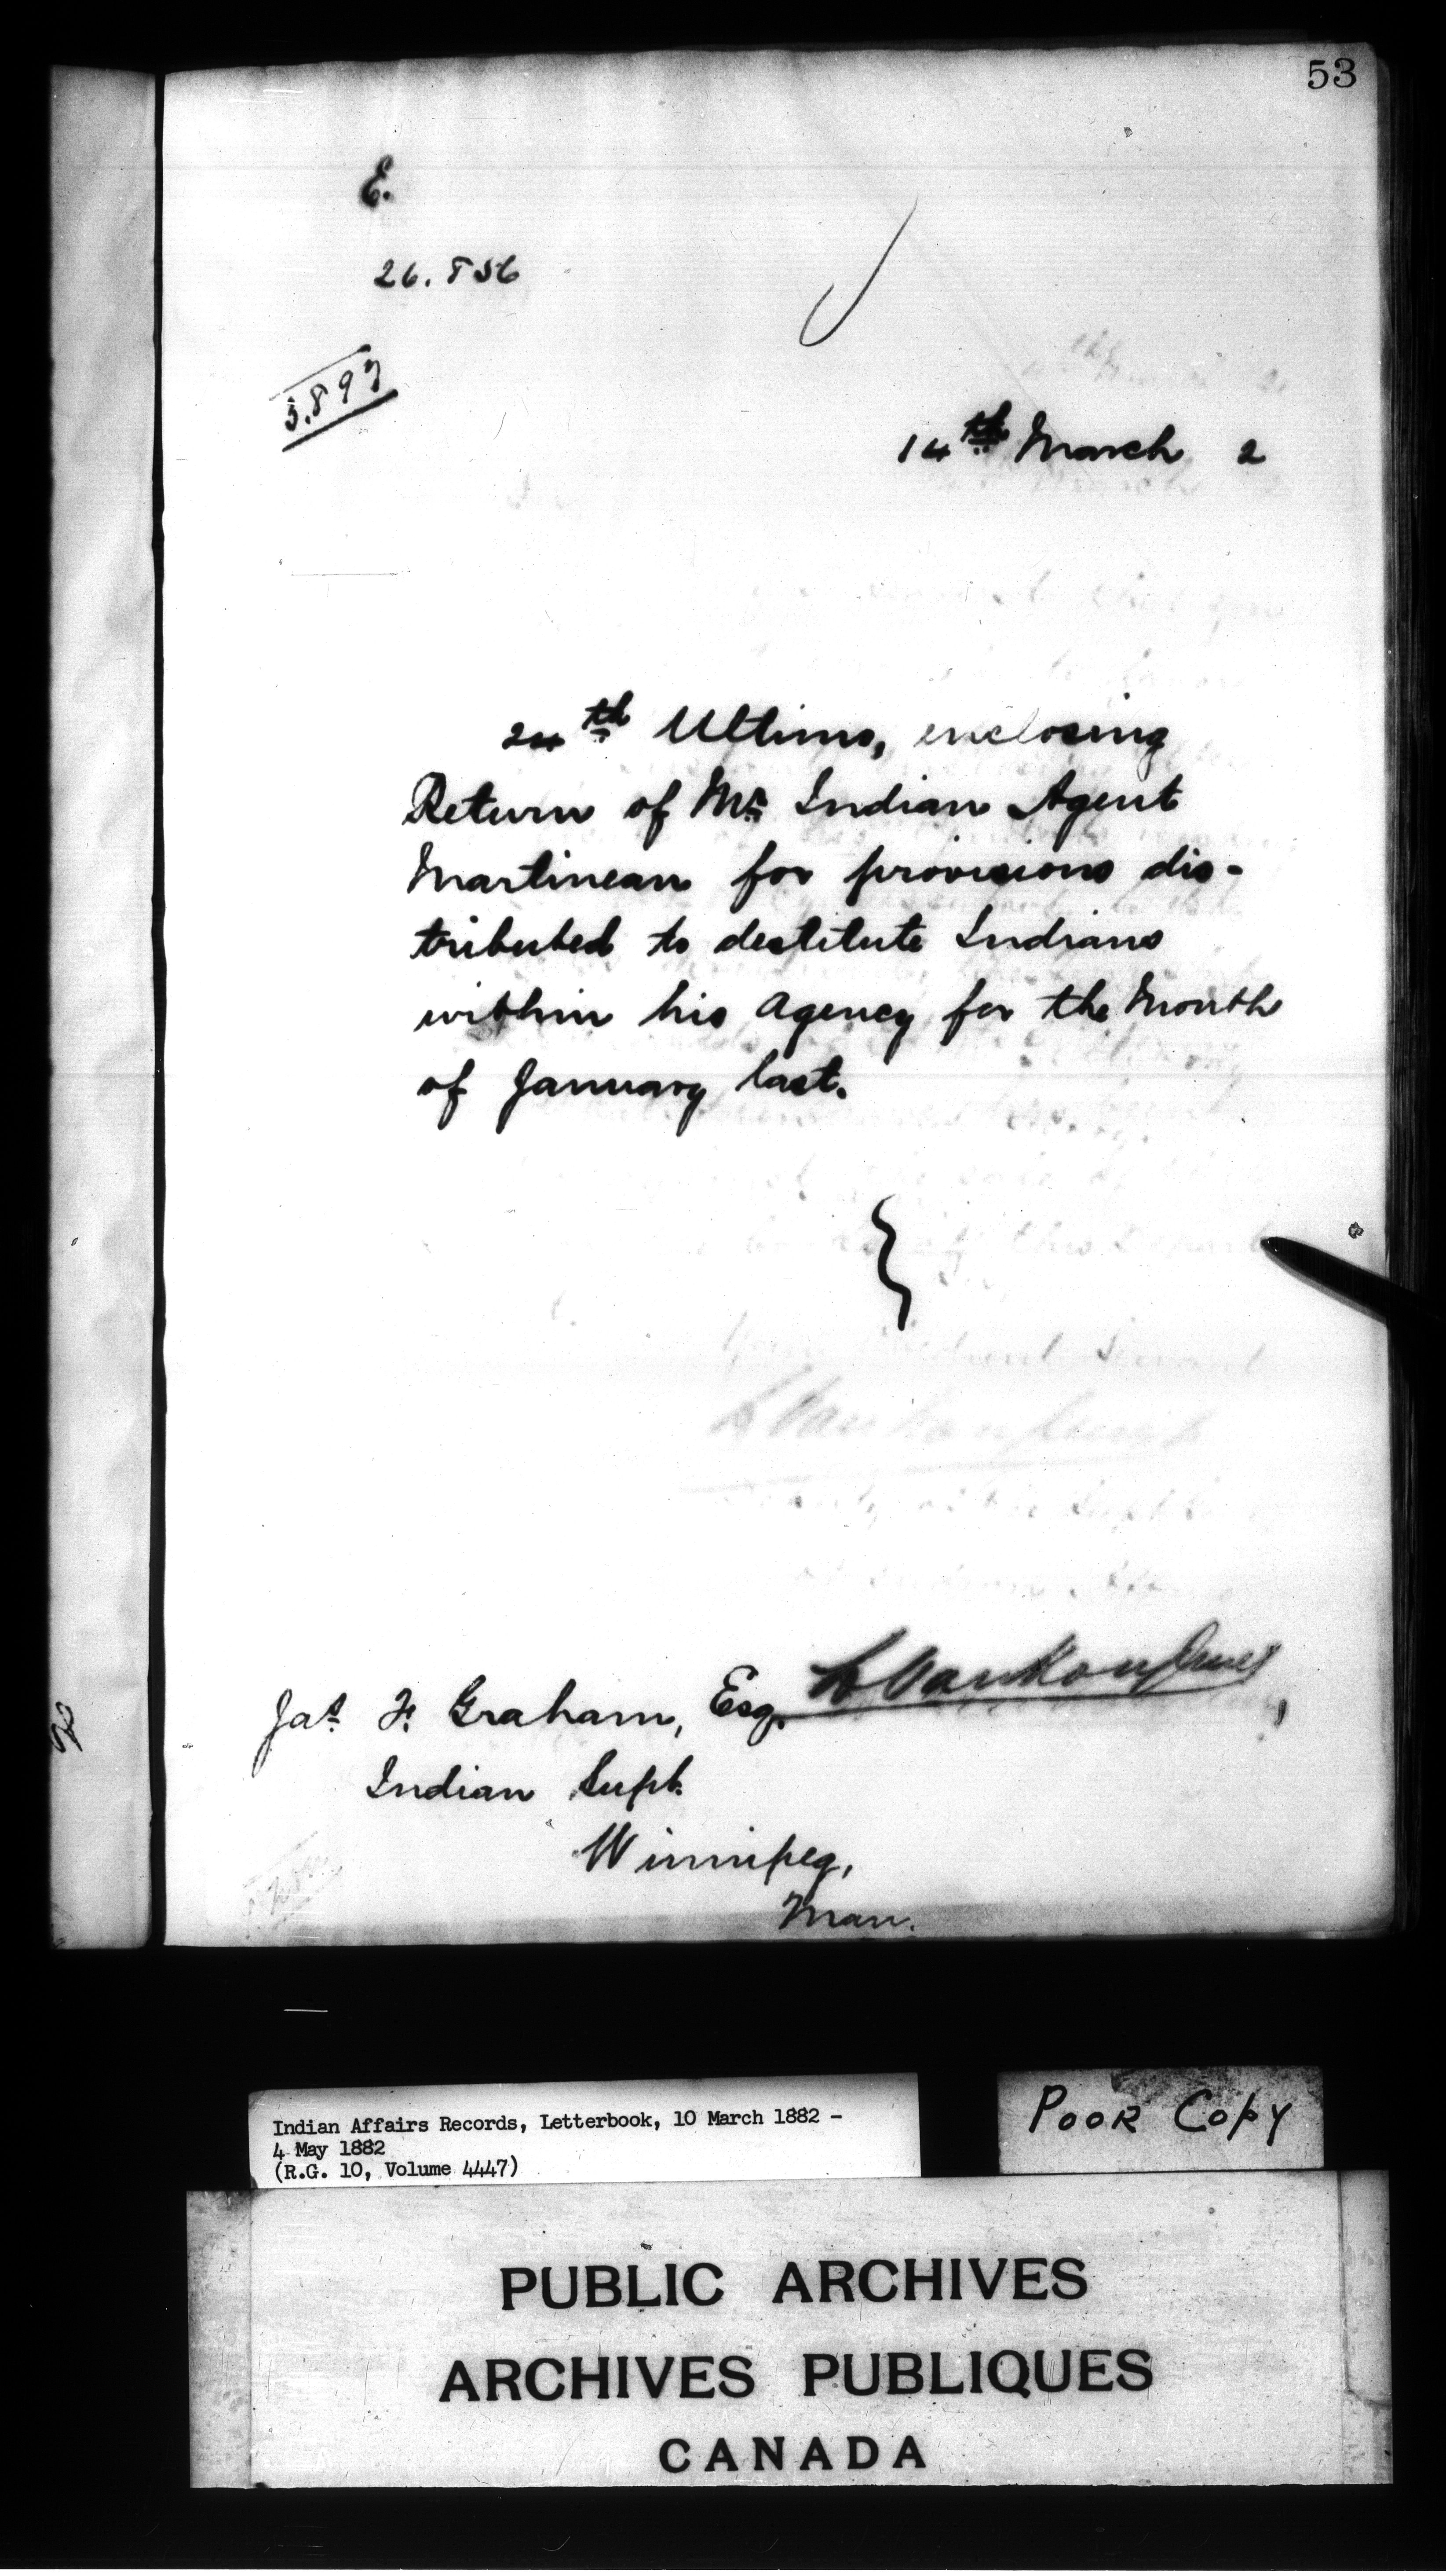 53
E.
26.856
3.897
14th March 2
24th Ultimo, enclosing
Return of Mr Indian Agent
Martineau for provisions dis-
tributed to destitute Indians
within his Agency for the Month
of January last.
L VanKoughnet
Jas F. Graham, Esq.,
Indian Supt.
Winnipeg,
Man.
Indian Affairs Records, Letterbook, 10 March 1882 -
4 May 1882
(R.G. 10, Volume 4447)
POOR COPY
PUBLIC ARCHIVES
ARCHIVES PUBLIQUES
CANADA